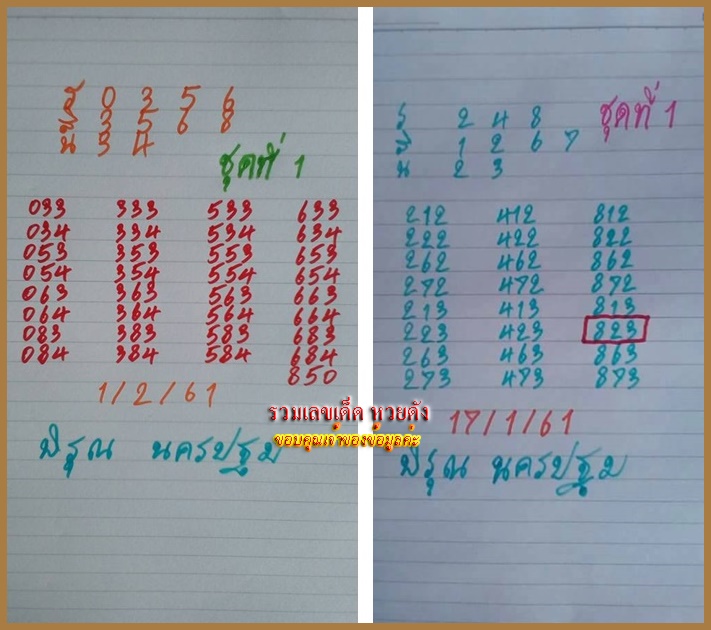 ร 0 3 5 6
สิ 3 5 6 8
น 3 4
ชุดที่ 1
033 333 533 633
034 334 534 634
053 353 553 653
054 354 554 654
063 363 563 663
064 364 564 664
083 383 583 683
084 384 584 684
850
1/2/61
พิรุณ นครปฐม
ร 2 4 8
สิ 1 2 6 7
น 2 3
ชุดที่ 1
212 412 812
222 422 822
262 462 862
272 472 872
213 413 813
223 423 823
263 463 863
273 473 873
17/1/61
พิรุณ นครปฐม
รวมเลขเด็ด หวยดัง
ขอบคุณเจ้าของข้อมูลค่ะ